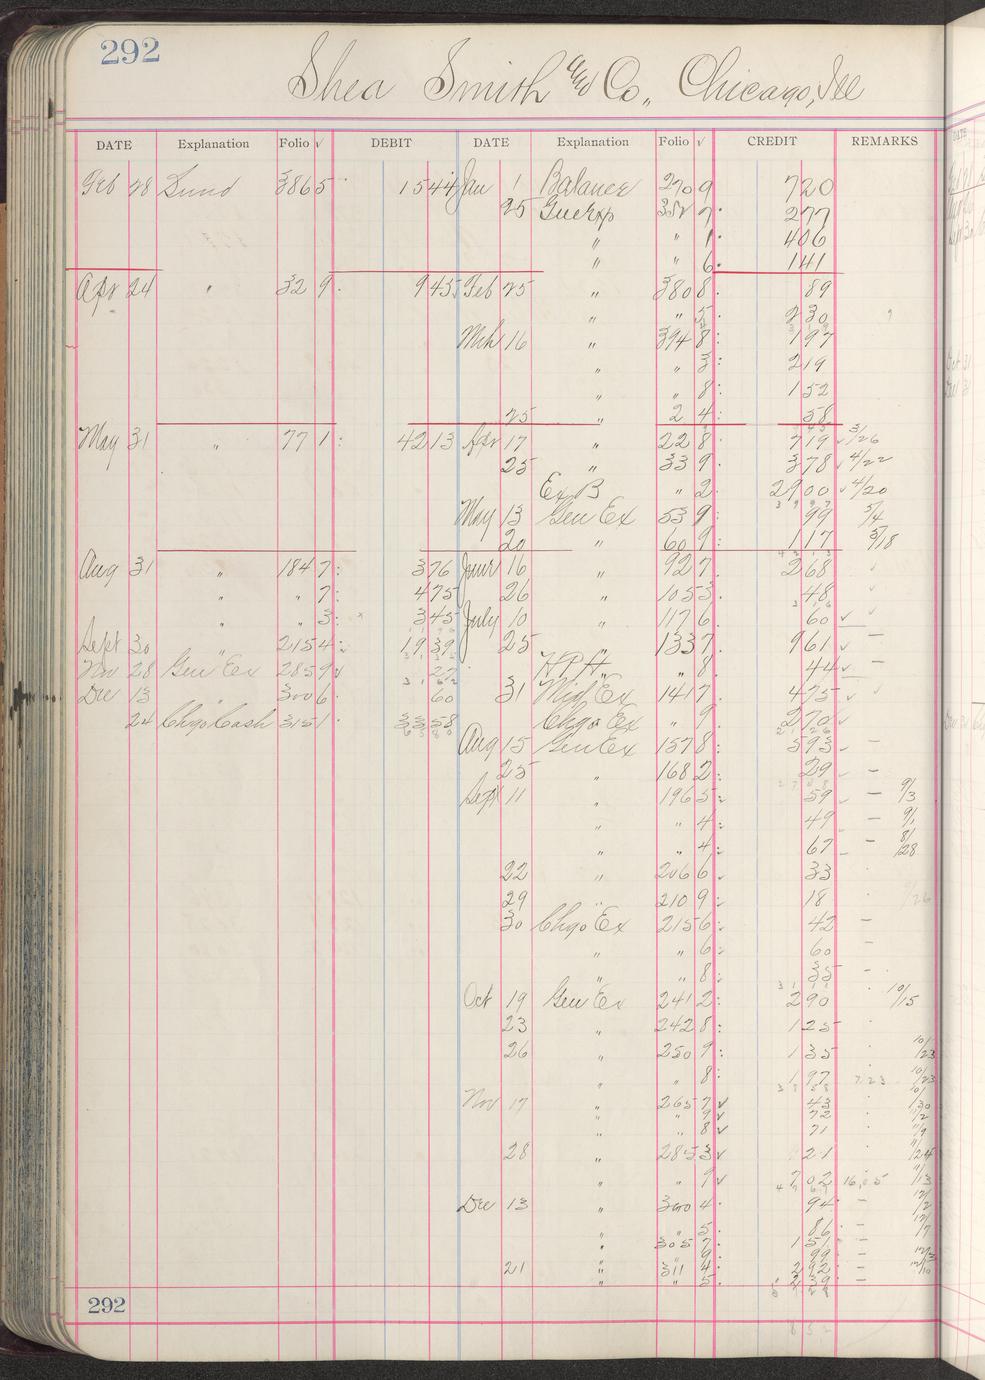 292
Shea Smith and Co., Chicago, Ill
DATE Explanation Folio √ DEBIT DATE Explanation Folio √ CREDIT REMARKS
Feb 28 Sund 386 5 1544 Jan 1 Balance 270 9 720
25 358 7 277
" " 1 406
" " 6 141
Apr 24 " 32 9 945 Feb 25 " 380 8 89
" " 5 230
Mch 16 " 394 8 197
" " 3 219
" " 8 152
25 " 2 4 58
May 31 " 77 1 4213 Apr 17 " 22 8 719 √ 3/26
25 " 33 9 378 √ 4/22
Ex B " 2 2900 √ 4/20
May 13 Gen Ex 53 9 99 5/4
20 " 60 9 117 5/18
Aug 31 " 184 7 376 June 16 " 92 7 268
" " 7 475 26 " 105 3 48
" " 3 345 July 10 " 117 6 60 √
Sept 30 " 215 4 1939 25 " 133 7 961 √ –
Nov 28 Gen Ex 285 9 √ 22 " 8 44 √ –
Dec 13 " 300 6 60 31 Mid Ex 141 7 475 √
24 Chgo Cash 315 1 3358 Chgo Ex " 9 270 √
Aug 15 Gen Ex 157 8 593 –
25 " 168 2 29 √ –
Sept 11 " 196 5 59 √ – 9/3
" " 4 49 – 9/1
" " 4 67 – 8/28
22 " 206 6 33
29 " 210 9 18
30 Chgo Ex 215 6 42 –
" " 6 60 –
" " 8 35 –
Oct 19 Gen Ex 241 2 290 10/15
23 " 242 8 125
26 " 250 9 135 10/23
" " 8 197 7 23 10/23
Nov 17 " 265 7 √ 43 10/30
" " 9 √ 72 11/2
" " 8 √ 71 11/9
28 " 285 3 √ 21 11/24
" " 9 √ 702 11/13
Dec 13 " 300 4 94 – 12/2
" " 5 86 – 12/7
" 305 7 151 –
" 9 99 – 12/3
21 " 311 4 292 – 12/10
" " 5 239 –
292